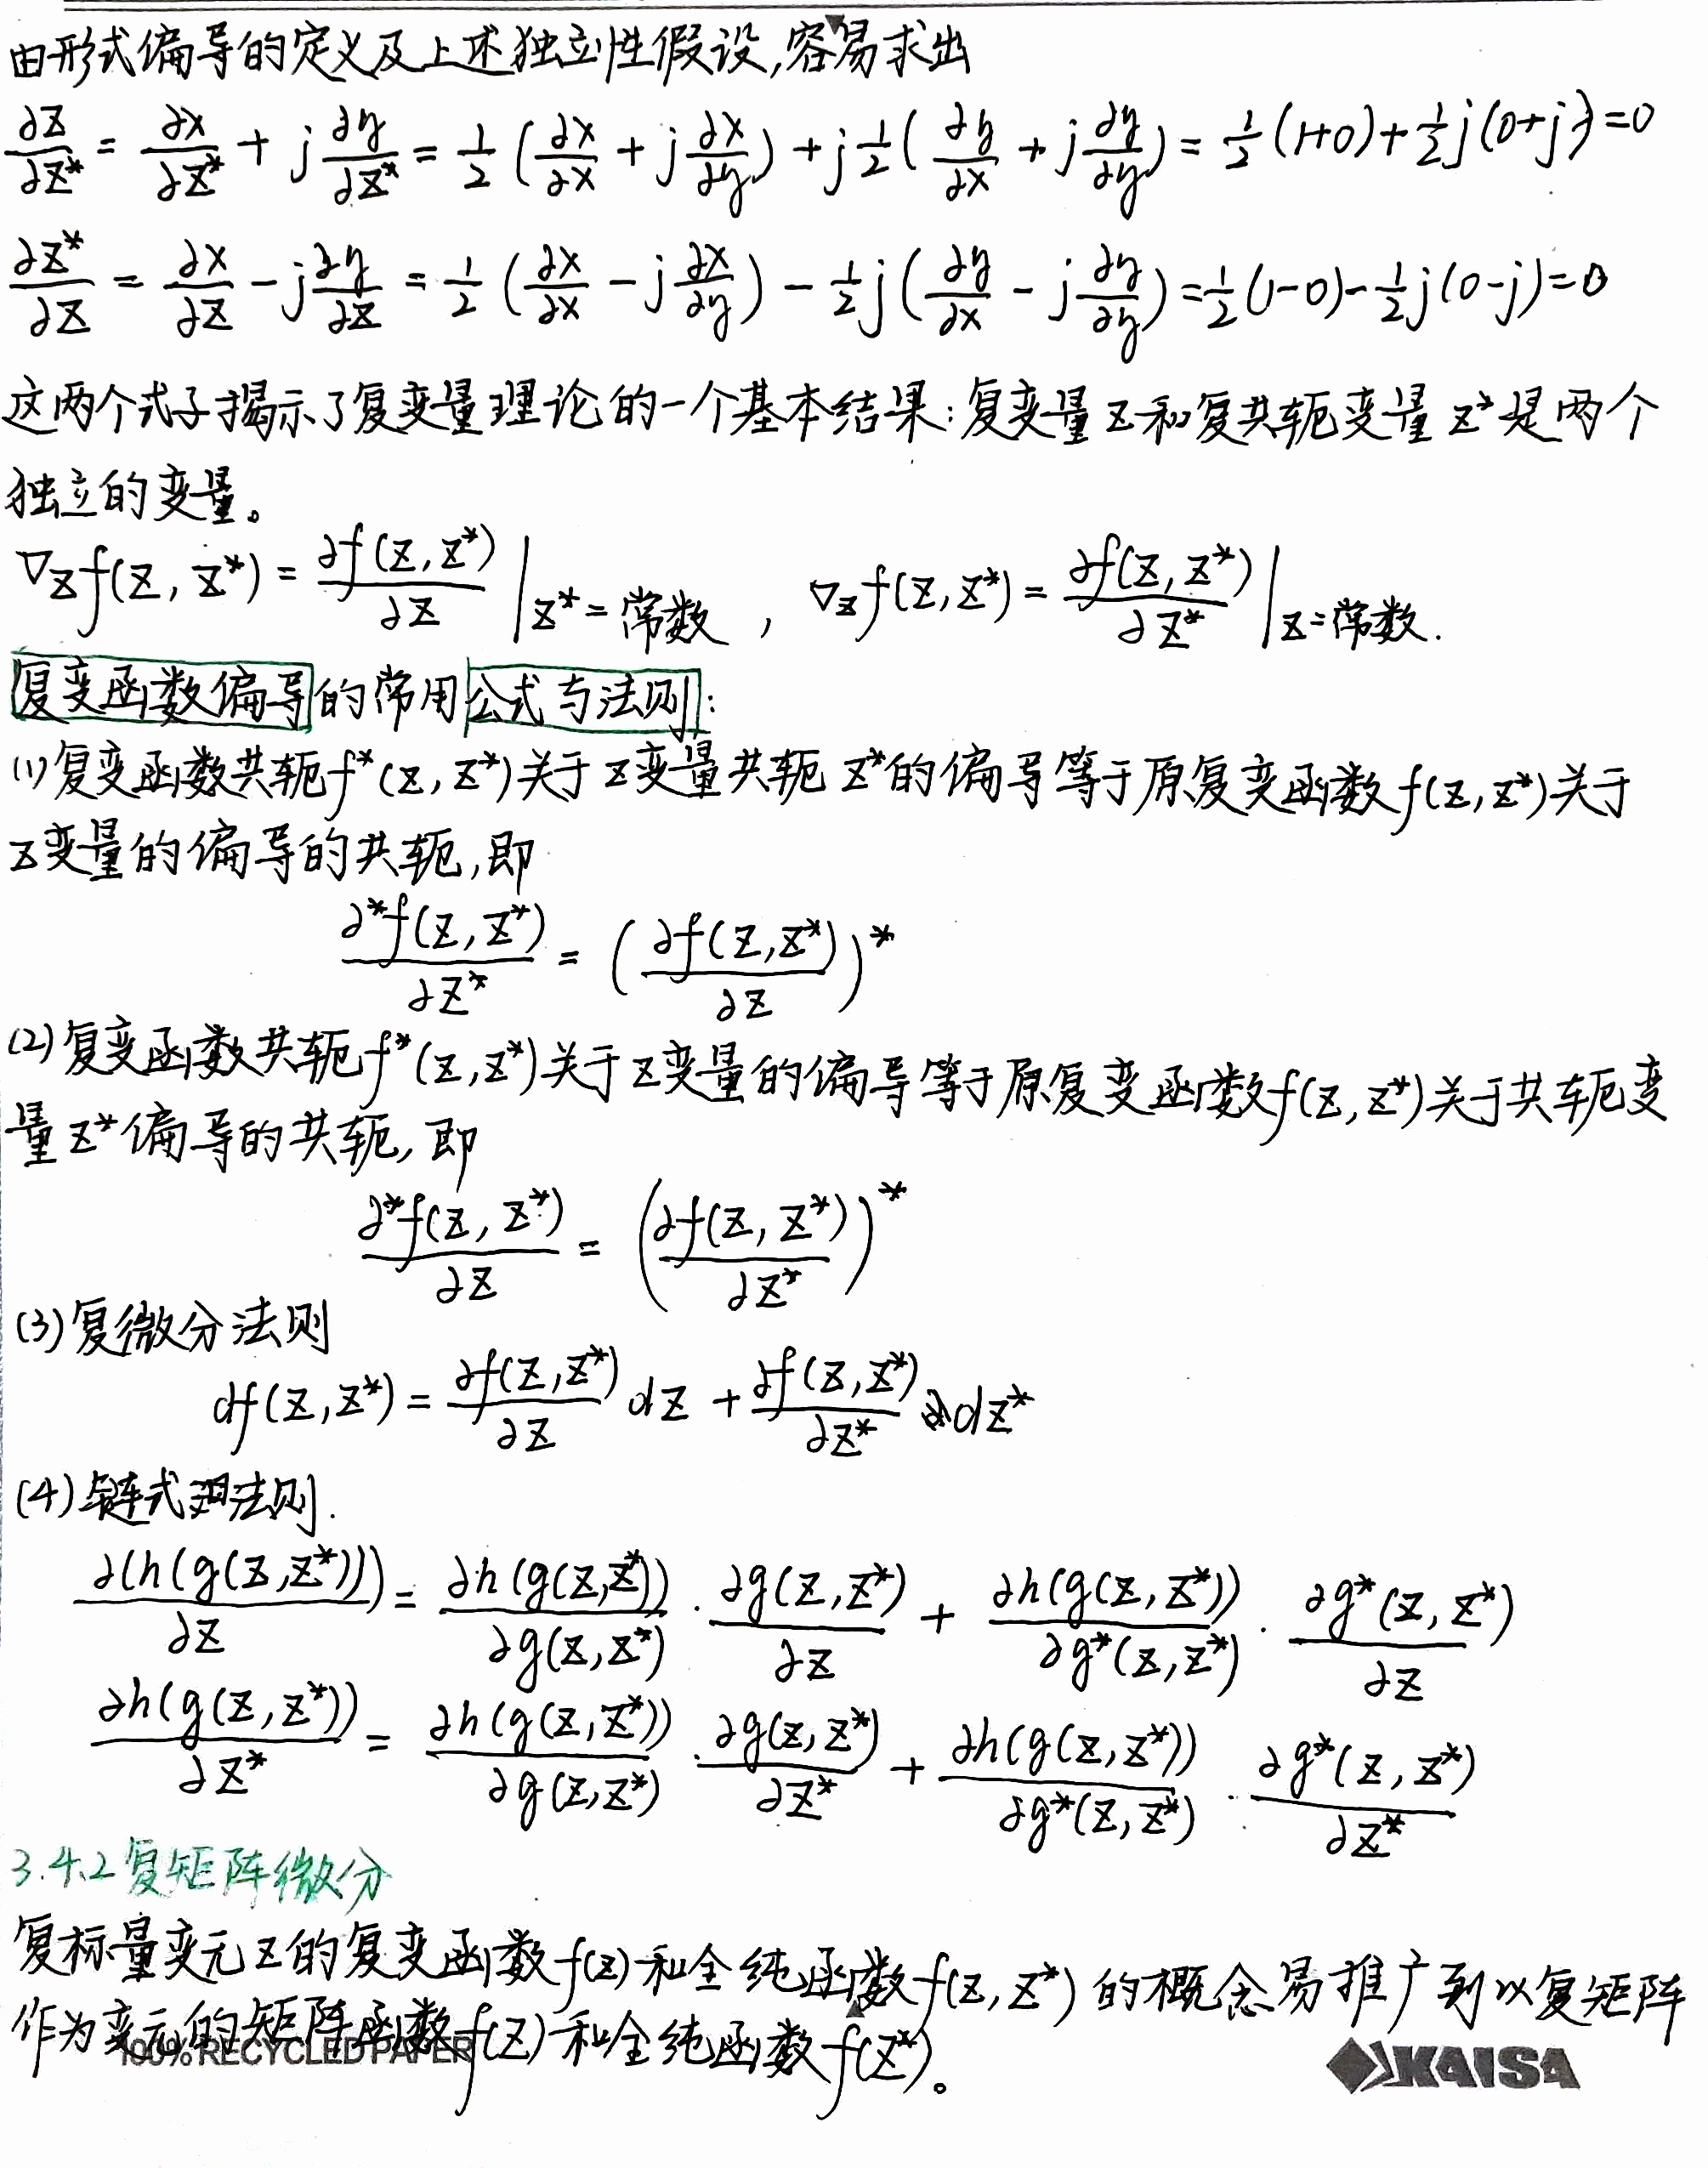 由形式偏导的定义及上述独立性假设,容易求出
∂z/∂z* = ∂x/∂z* + j ∂y/∂z* = 1/2 (∂x/∂x + j ∂x/∂y) + j 1/2 (∂y/∂x + j ∂y/∂y) = 1/2 (1+0) + 1/2 j (0+j) = 0
∂z*/∂z = ∂x/∂z - j ∂y/∂z = 1/2 (∂x/∂x - j ∂x/∂y) - 1/2 j (∂y/∂x - j ∂y/∂y) = 1/2 (1-0) - 1/2 j (0-j) = 0
这两个式子揭示了复变量理论的一个基本结果:复变量 z 和复共轭变量 z* 是两个
独立的变量。
∇z f(z, z*) = ∂f(z, z*)/∂z | z* = 常数 , ∇z f(z, z*) = ∂f(z, z*)/∂z* | z = 常数.
复变函数偏导的常用公式与法则:
(1) 复变函数共轭 f*(z, z*) 关于 z 变量共轭 z* 的偏导等于原复变函数 f(z, z*) 关于
z 变量的偏导的共轭,即
∂*f(z, z*)/∂z* = (∂f(z, z*)/∂z)*
(2) 复变函数共轭 f*(z, z*) 关于 z 变量的偏导等于原复变函数 f(z, z*) 关于共轭变
量 z* 偏导的共轭,即
∂*f(z, z*)/∂z = (∂f(z, z*)/∂z*)*
(3) 复微分法则
df(z, z*) = ∂f(z, z*)/∂z dz + ∂f(z, z*)/∂z* dz*
(4) 链式法则.
∂(h(g(z, z*)))/∂z = ∂h(g(z, z*))/∂g(z, z*) · ∂g(z, z*)/∂z + ∂h(g(z, z*))/∂g*(z, z*) · ∂g*(z, z*)/∂z
∂h(g(z, z*))/∂z* = ∂h(g(z, z*))/∂g(z, z*) · ∂g(z, z*)/∂z* + ∂h(g(z, z*))/∂g*(z, z*) · ∂g*(z, z*)/∂z*
3.4.2 复矩阵微分
复标量变元 z 的复变函数 f(z) 和全纯函数 f(z, z*) 的概念易推广到以复矩阵
作为变元的矩阵函数 f(Z) 和全纯函数 f(Z*)。
100% RECYCLED PAPER
KAISA